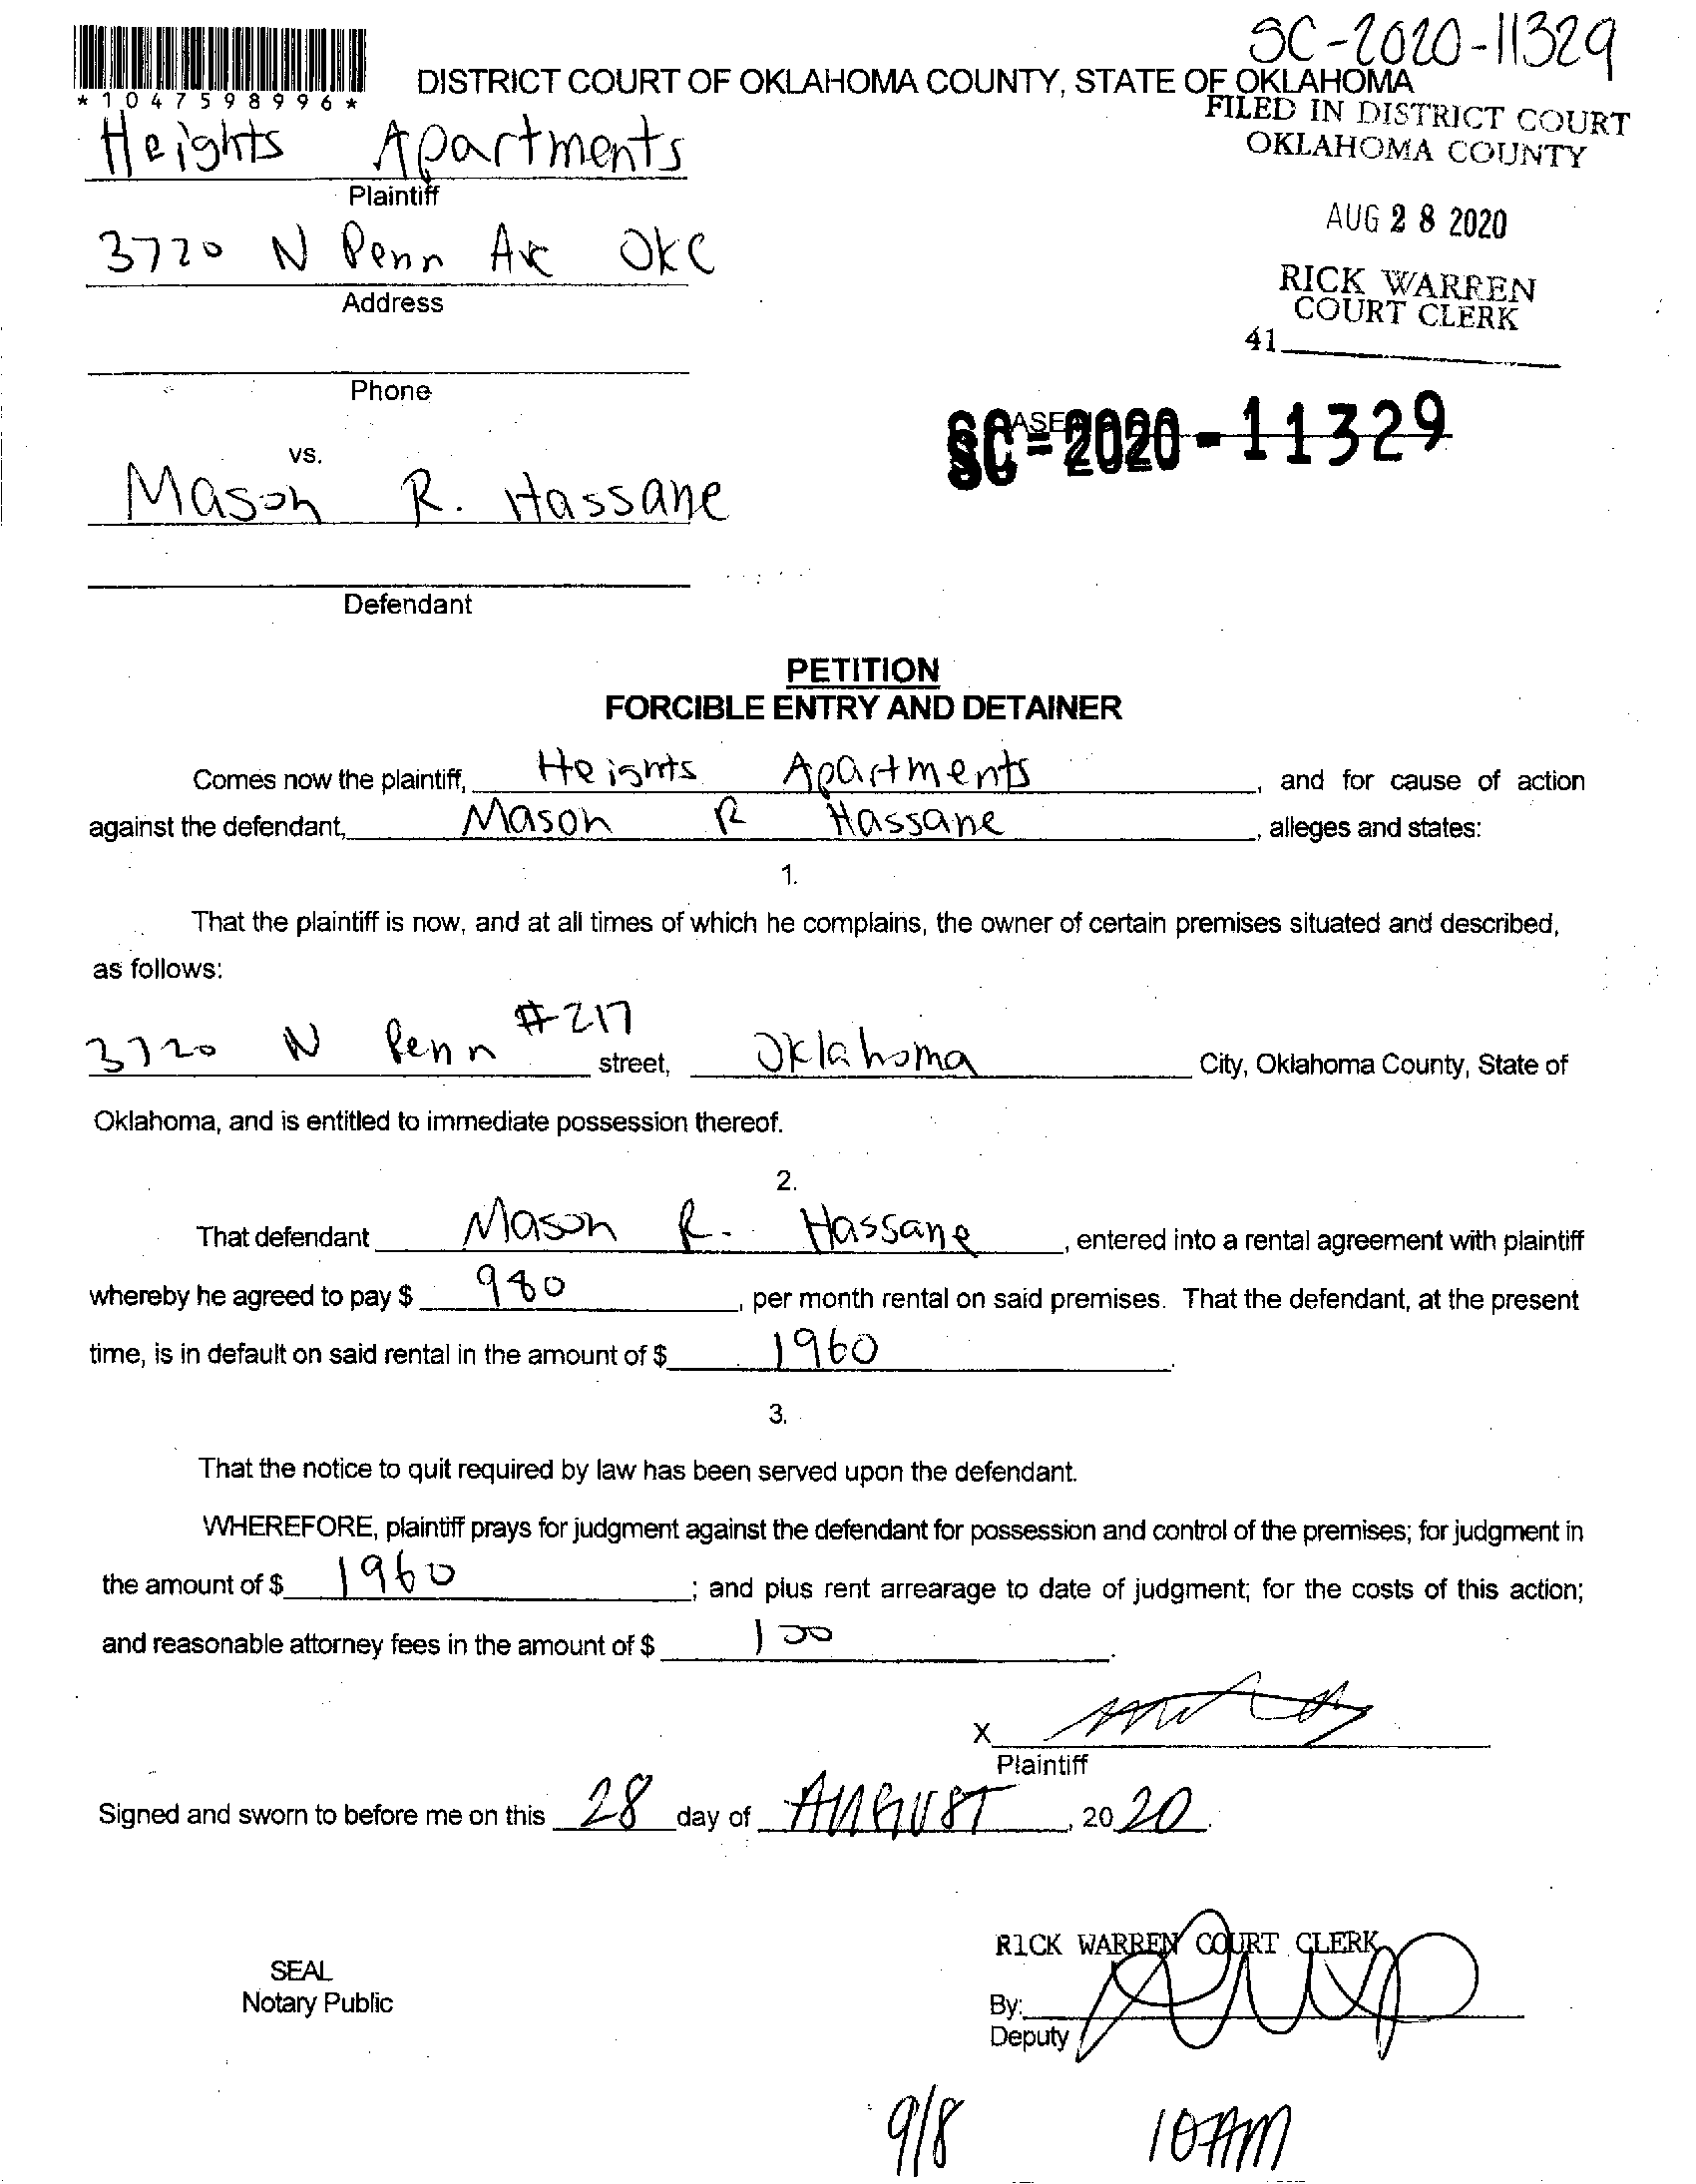 SC-2020-11329
*1047598996*
DISTRICT COURT OF OKLAHOMA COUNTY, STATE OF OKLAHOMA
FILED IN DISTRICT COURT
OKLAHOMA COUNTY
Heights Apartments
Plaintiff
AUG 28 2020
3720 N Penn Ave OKC
Address
RICK WARREN
COURT CLERK
41
Phone
SC-2020-11329
vs.
Mason R. Hassane
Defendant
PETITION
FORCIBLE ENTRY AND DETAINER
Comes now the plaintiff, Heights Apartments, and for cause of action
against the defendant, Mason R Hassane, alleges and states:
1.
That the plaintiff is now, and at all times of which he complains, the owner of certain premises situated and described,
as follows:
3720 N Penn #217 street, Oklahoma City, Oklahoma County, State of
Oklahoma, and is entitled to immediate possession thereof.
2.
That defendant Mason R. Hassane, entered into a rental agreement with plaintiff
whereby he agreed to pay $ 980, per month rental on said premises. That the defendant, at the present
time, is in default on said rental in the amount of $ 1960.
3.
That the notice to quit required by law has been served upon the defendant.
WHEREFORE, plaintiff prays for judgment against the defendant for possession and control of the premises; for judgment in
the amount of $ 1960; and plus rent arrearage to date of judgment; for the costs of this action;
and reasonable attorney fees in the amount of $ 100.
X
Plaintiff
Signed and sworn to before me on this 28 day of AUGUST, 2020.
RICK WARREN COURT CLERK
SEAL
Notary Public
By:
Deputy
9/8 10AM